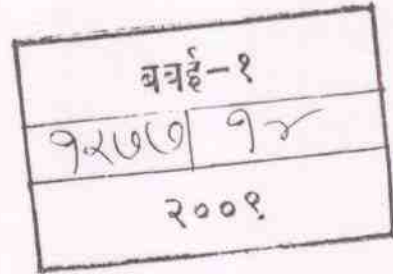 बबई-१
१२७७ १४
२००९